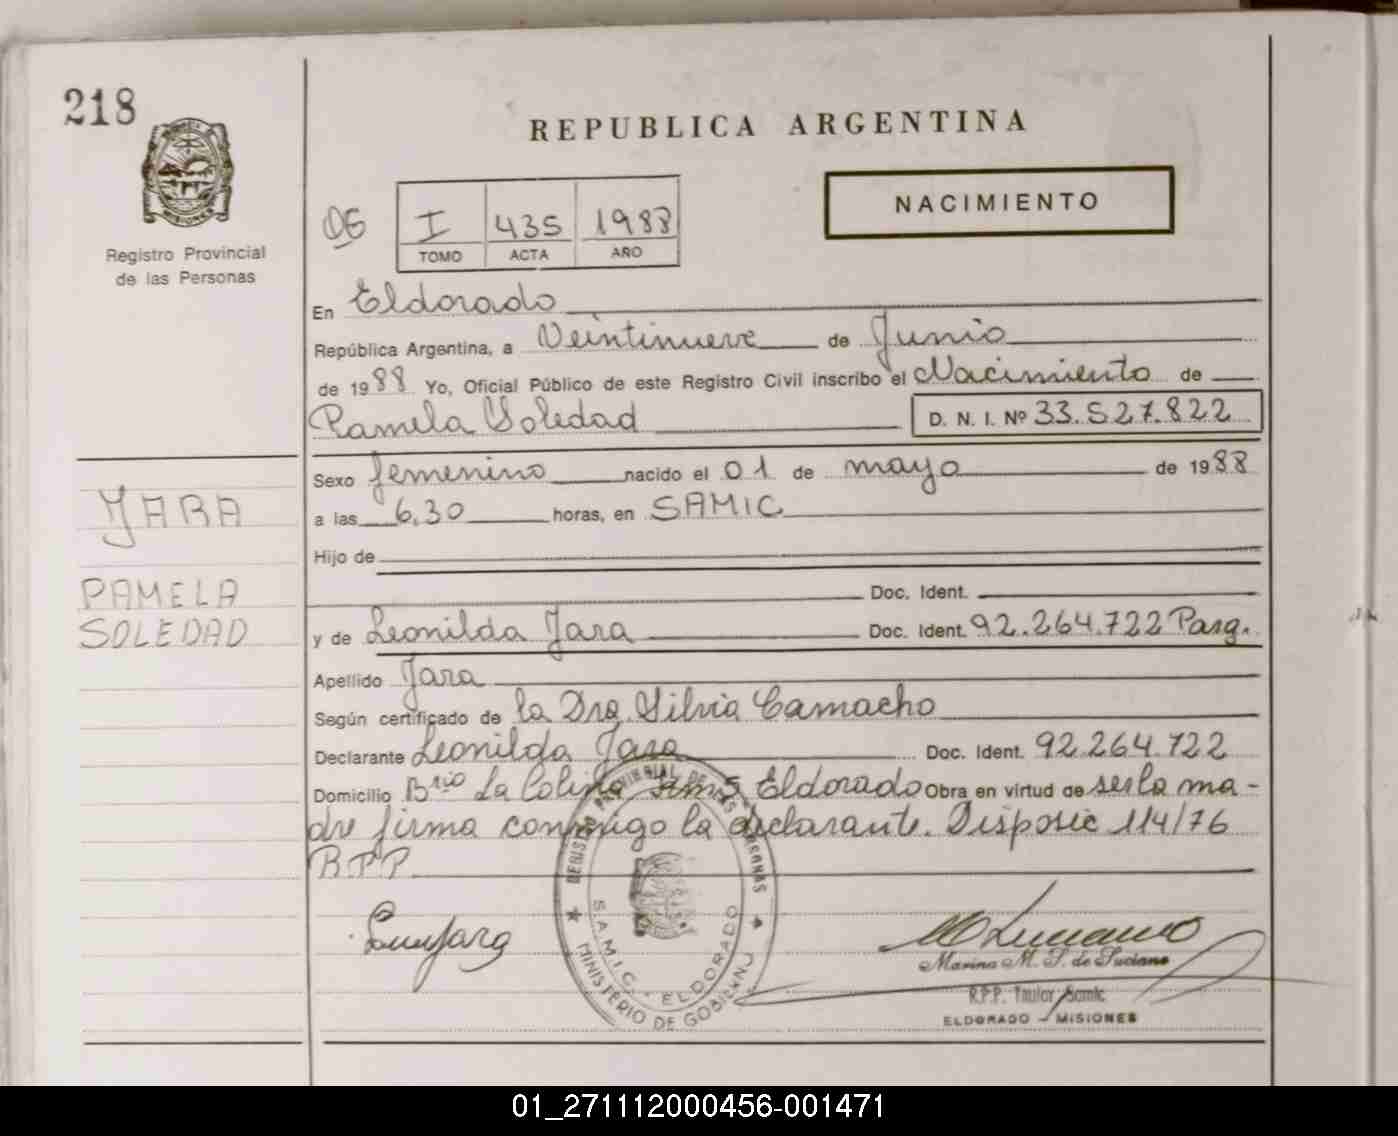 218
REPUBLICA ARGENTINA
MISIONES
Registro Provincial
de las Personas
NACIMIENTO
I 435 1988
TOMO ACTA AÑO
En Eldorado
República Argentina, a Veintinueve de Junio
de 1988 Yo, Oficial Público de este Registro Civil inscribo el Nacimiento de
Pamela Soledad D. N. I. Nº 33.527.822
Sexo femenino nacido el 01 de mayo de 1988
a las 6,30 horas, en SAMIC
Hijo de
Doc. Ident.
y de Leonilda Jara Doc. Ident. 92.264.722 Parg.
Apellido Jara
Según certificado de la Dra. Silvia Camacho
Declarante Leonilda Jara Doc. Ident. 92.264.722
Domicilio Brio La Colina Km 5 Eldorado Obra en virtud de ser la ma-
dre firma conmigo la declarante. Disposic 114/76
R.P.P.
JARA
PAMELA
SOLEDAD
REGISTRO PROVINCIAL DE LAS PERSONAS
S.A.M.I.C. - ELDORADO
MINISTERIO DE GOBIERNO
Marina M. S. de Luciano
R.P.P. Titular Samic
ELDORADO - MISIONES
01_271112000456-001471